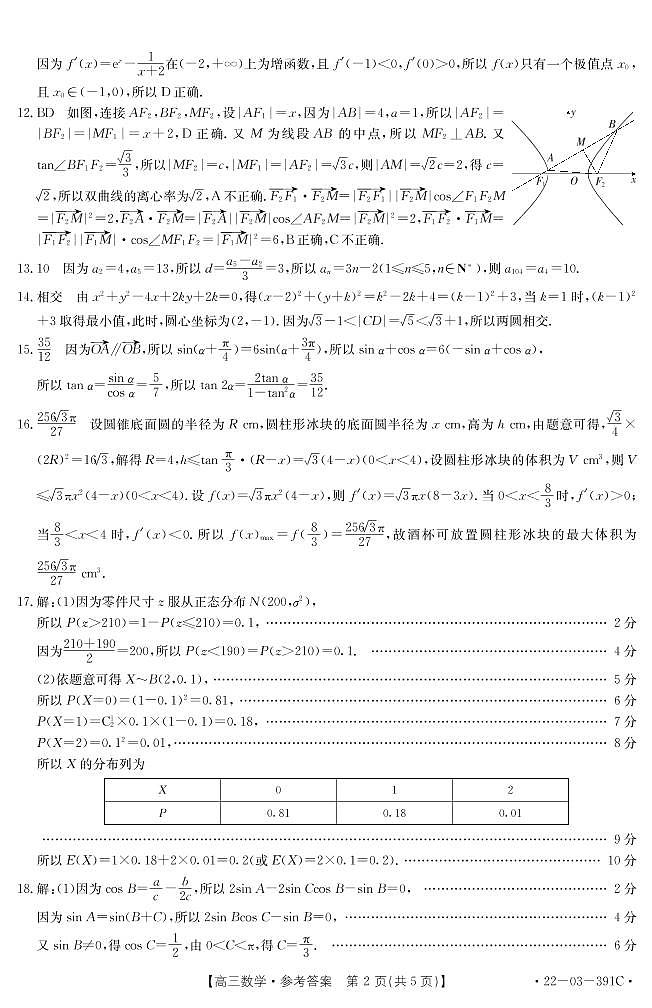 因为 f′(x)=eˣ−1/(x+2)在(−2,+∞)上为增函数,且 f′(−1)<0,f′(0)>0,所以 f(x)只有一个极值点 x₀,
且 x₀∈(−1,0),所以 D 正确.
12. BD 如图,连接 AF₂,BF₂,MF₂,设|AF₁|=x,因为|AB|=4,a=1,所以|AF₂|=
|BF₂|=|MF₁|=x+2,D 正确. 又 M 为线段 AB 的中点,所以 MF₂⊥AB. 又
tan∠BF₁F₂=√3/3,所以|MF₂|=c,|MF₁|=|AF₂|=√3c,则|AM|=√2c=2,得 c=
√2,所以双曲线的离心率为√2,A 不正确. F₂F₁→·F₂M→=|F₂F₁→||F₂M→|cos∠F₁F₂M
=|F₂M→|²=2,F₂A→·F₂M→=|F₂A→||F₂M→|cos∠AF₂M=|F₂M→|²=2,F₁F₂→·F₁M→=
|F₁F₂→||F₁M→|·cos∠MF₁F₂=|F₁M→|²=6,B 正确,C 不正确.
y
B
M
A
F₁
O
F₂
x
13. 10 因为 a₂=4,a₅=13,所以 d=(a₅−a₂)/3=3,所以 aₙ=3n−2(1≤n≤5,n∈N*),则 a₁₀₄=a₄=10.
14. 相交 由 x²+y²−4x+2ky+2k=0,得(x−2)²+(y+k)²=k²−2k+4=(k−1)²+3,当 k=1 时,(k−1)²
+3 取得最小值,此时,圆心坐标为(2,−1). 因为√3−1<|CD|=√5<√3+1,所以两圆相交.
15. 35/12 因为OA→∥OB→,所以 sin(α+π/4)=6sin(α+3π/4),所以 sin α+cos α=6(−sin α+cos α),
所以 tan α=sin α/cos α=5/7,所以 tan 2α=2tan α/(1−tan²α)=35/12.
16. 256√3π/27 设圆锥底面圆的半径为 R cm,圆柱形冰块的底面圆半径为 x cm,高为 h cm,由题意可得,√3/4×
(2R)²=16√3,解得 R=4,h≤tan π/3·(R−x)=√3(4−x)(0<x<4),设圆柱形冰块的体积为 V cm³,则 V
≤√3πx²(4−x)(0<x<4). 设 f(x)=√3πx²(4−x),则 f′(x)=√3πx(8−3x). 当 0<x<8/3时,f′(x)>0;
当8/3<x<4 时,f′(x)<0. 所以 f(x)max=f(8/3)=256√3π/27,故酒杯可放置圆柱形冰块的最大体积为
256√3π/27 cm³.
17. 解:(1)因为零件尺寸 z 服从正态分布 N(200,σ²),
所以 P(z>210)=1−P(z≤210)=0.1, …… 2 分
因为(210+190)/2=200,所以 P(z<190)=P(z>210)=0.1. …… 4 分
(2)依题意可得 X~B(2,0.1), …… 5 分
所以 P(X=0)=(1−0.1)²=0.81, …… 6 分
P(X=1)=C₂¹×0.1×(1−0.1)=0.18, …… 7 分
P(X=2)=0.1²=0.01, …… 8 分
所以 X 的分布列为
X 0 1 2
P 0.81 0.18 0.01
…… 9 分
所以 E(X)=1×0.18+2×0.01=0.2(或 E(X)=2×0.1=0.2). …… 10 分
18. 解:(1)因为 cos B=a/c−b/2c,所以 2sin A−2sin Ccos B−sin B=0, …… 2 分
因为 sin A=sin(B+C),所以 2sin Bcos C−sin B=0, …… 4 分
又 sin B≠0,得 cos C=1/2,由 0<C<π,得 C=π/3. …… 6 分
【高三数学·参考答案 第 2 页(共 5 页)】
·22−03−391C·